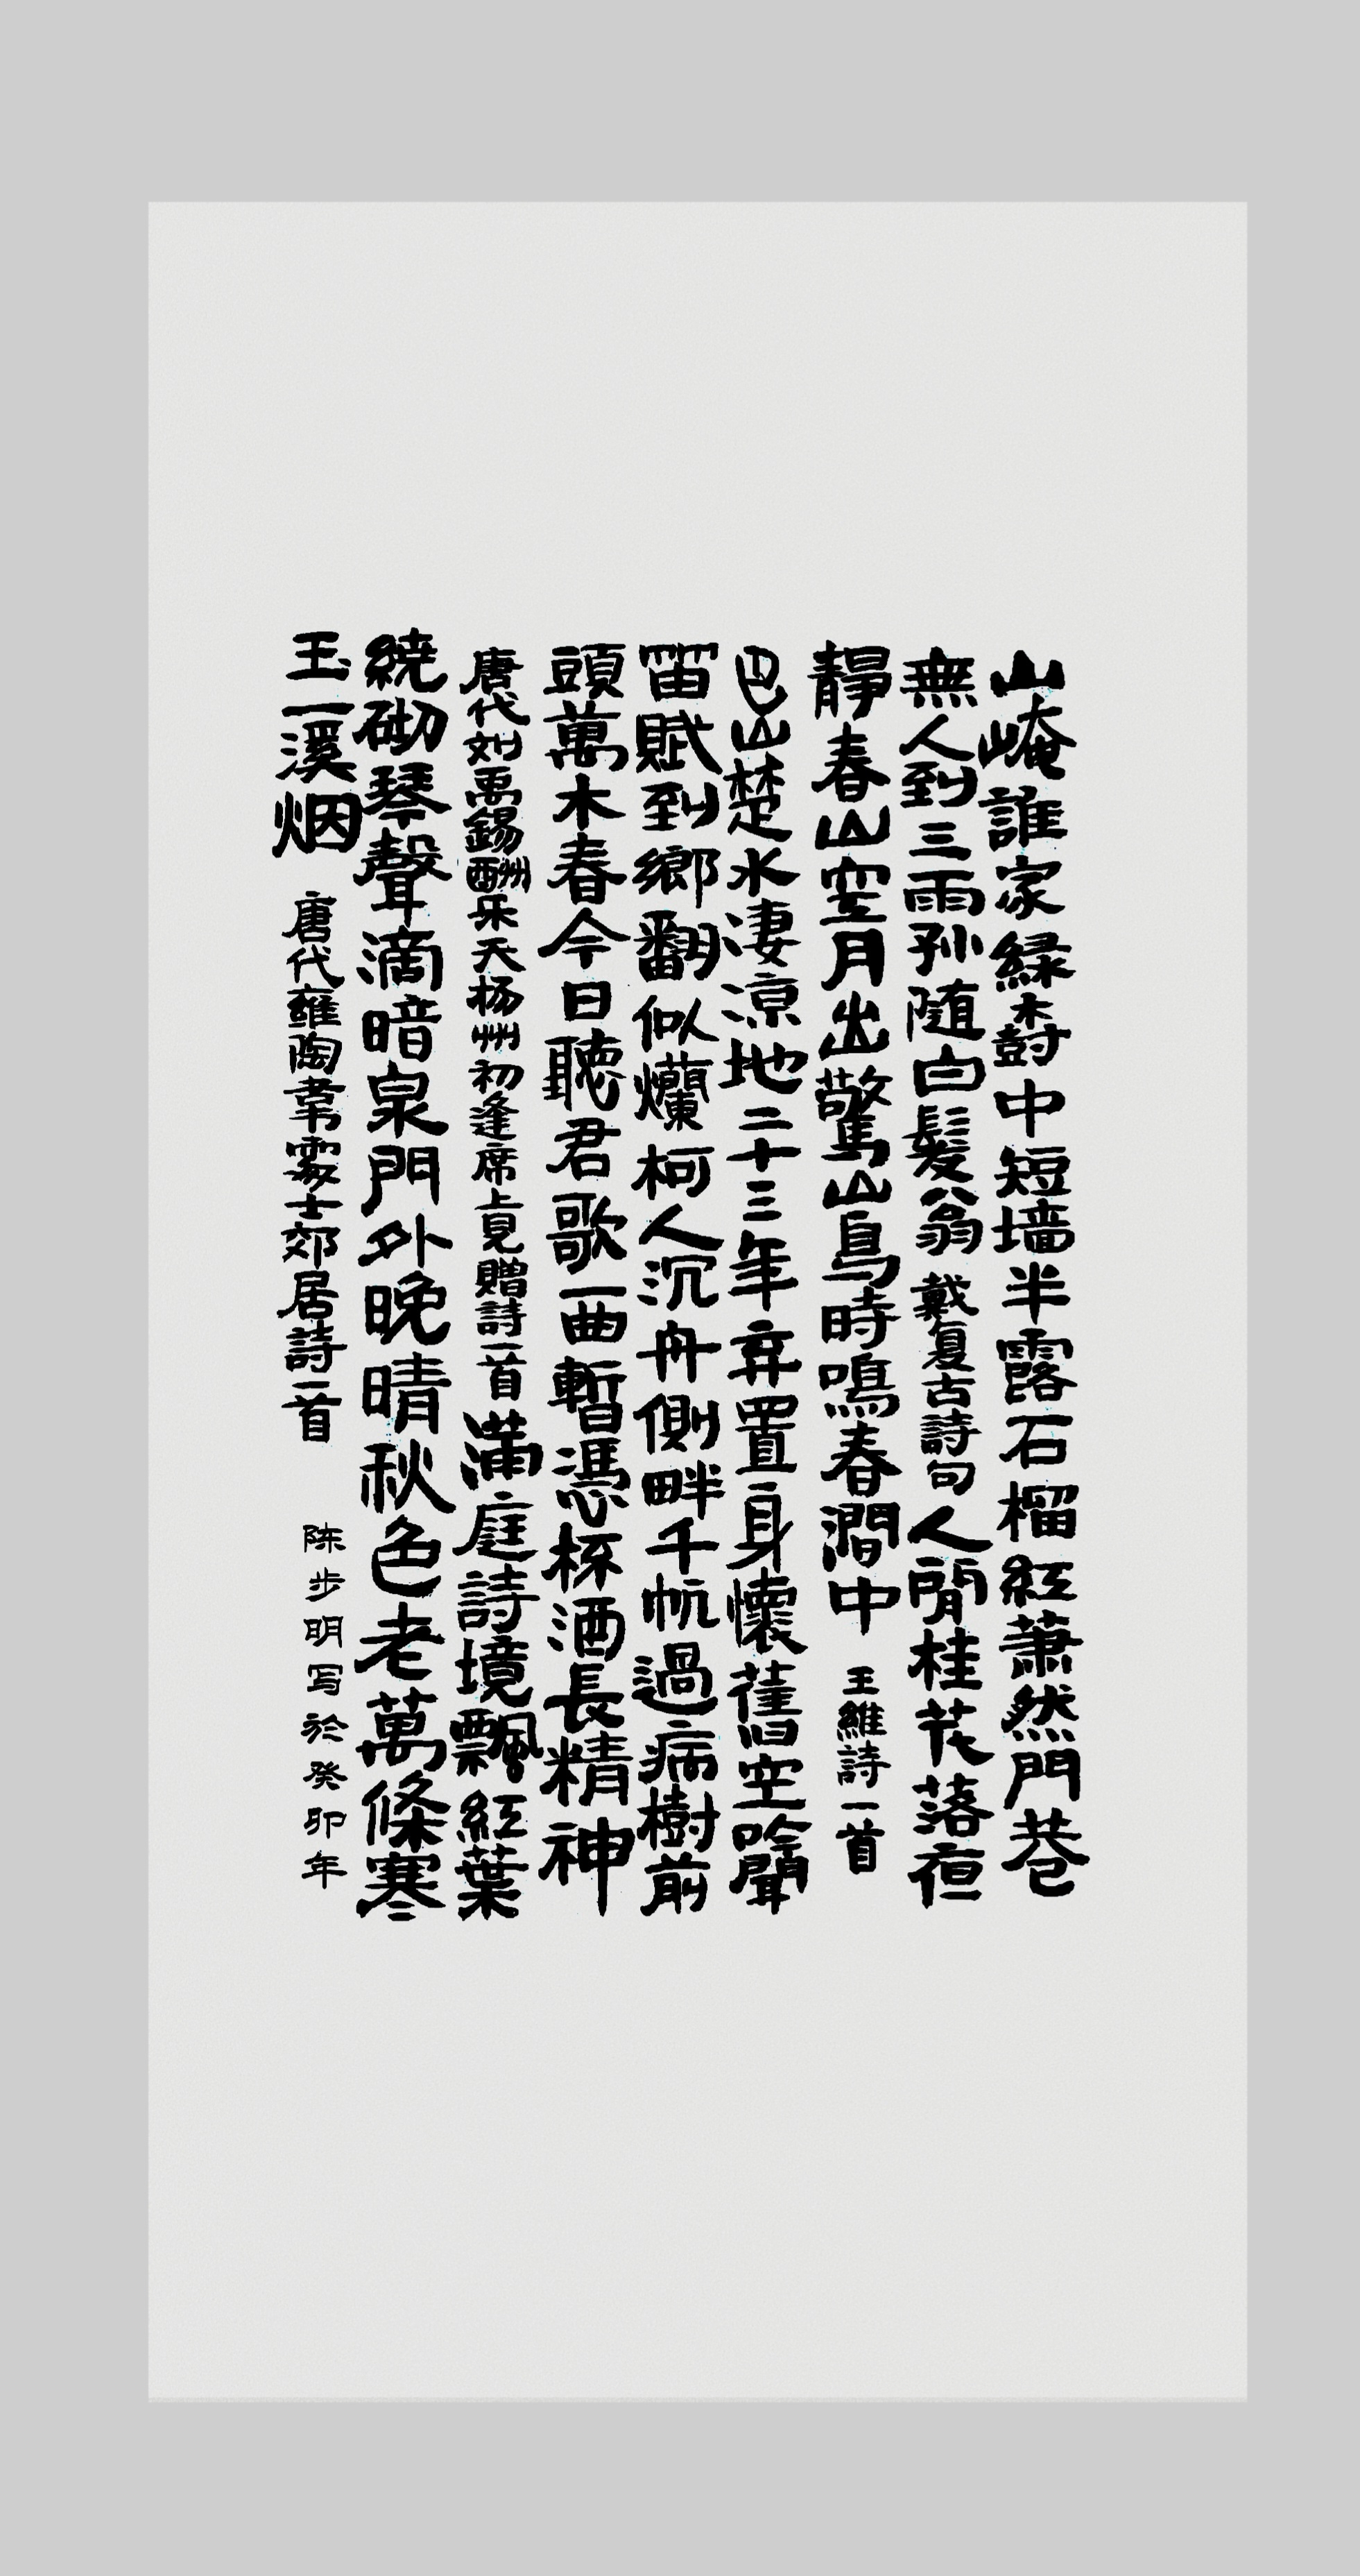 山崦誰家緑樹中短墙半露石榴紅蕭然門巷
無人到三兩孙随白髮翁戴复古詩句人閒桂花落夜
靜春山空月出驚山鳥時鳴春澗中王維詩一首
巴山楚水凄凉地二十三年弃置身懷舊空吟聞
笛賦到鄉翻似爛柯人沉舟側畔千帆過病樹前
頭萬木春今日聽君歌一曲暫憑杯酒長精神
唐代刘禹錫酬乐天杨州初逢席上見贈詩一首满庭詩境飄紅葉
繞砌琴聲滴暗泉門外晚晴秋色老萬條寒
玉一溪烟唐代雍陶韋處士郊居詩一首
陈步明写於癸卯年